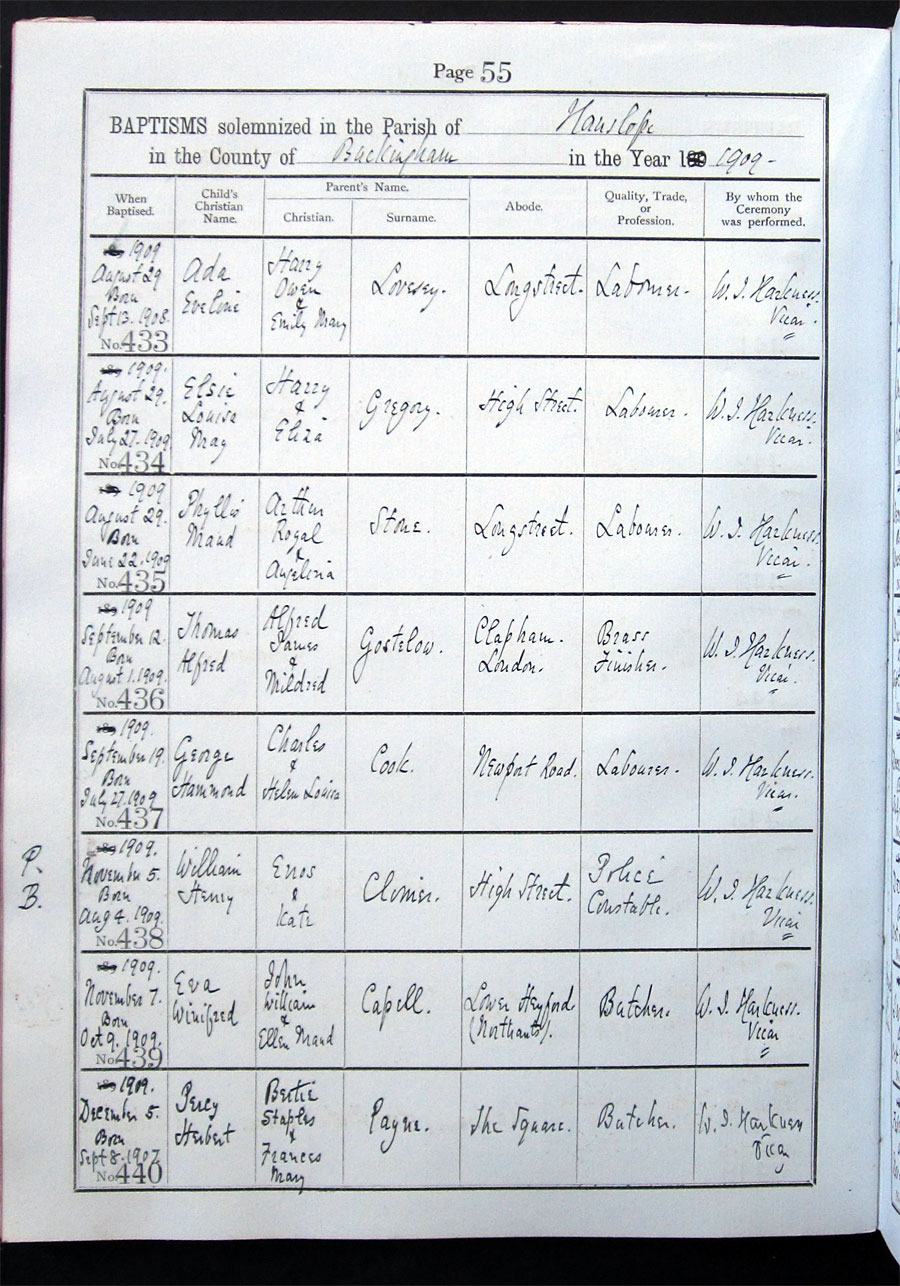 Page 55
BAPTISMS solemnized in the Parish of Hanslope
in the County of Buckingham in the Year 1909-
When Baptised.
Child's Christian Name.
Parent's Name.
Christian.
Surname.
Abode.
Quality, Trade, or Profession.
By whom the Ceremony was performed.
1909
August 29
Born
Sept 13. 1908.
No. 433
Ada
Eveline
Harry
Owen
&
Emily Mary
Lovesey.
Longstreet.
Labourer.
W. J. Harkness.
Vicar.
1909.
August 29.
Born
July 27. 1909
No. 434
Elsie
Louisa
May
Harry
&
Eliza
Gregory.
High Street.
Labourer.
W. J. Harkness.
Vicar.
1909
August 29.
Born
June 22. 1909
No. 435
Phyllis
Maud
Arthur
Royal
&
Angelina
Stone.
Longstreet.
Labourer.
W. J. Harkness.
Vicar.
1909
September 12.
Born
August 1. 1909.
No. 436
Thomas
Alfred
Alfred
James
&
Mildred
Gostelow.
Clapham.
London.
Brass
Finisher.
W. J. Harkness.
Vicar.
1909.
September 19.
Born
July 27. 1909
No. 437
George
Hammond
Charles
&
Helen Louisa
Cook.
Newport Road.
Labourer.
W. J. Harkness.
Vicar.
P.
B.
1909.
November 5.
Born
Aug 4. 1909.
No. 438
William
Henry
Enos
&
Kate
High Street.
Police
Constable.
W. J. Harkness.
Vicar
1909.
November 7.
Born
Oct 9. 1909.
No. 439
Eva
Winifred
John
William
&
Ellen Maud
Capell.
Lower Heyford
(Northants).
Butcher.
W. J. Harkness.
Vicar
1909.
December 5.
Born
Sept 8. 1907.
No. 440
Percy
Herbert
Bertie
Staples
&
Frances
Mary
Payne.
The Square.
Butcher.
W. J. Harkness
Vicar